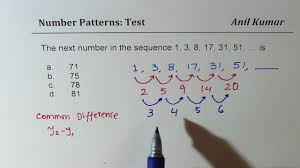 Number Patterns: Test
Anil Kumar
The next number in the sequence 1, 3, 8, 17, 31, 51, ... is
a. 71
b. 75
c. 78
d. 81
1, 3, 8, 17, 31, 51, __
2 5 9 14 20
3 4 5 6
Common Difference
y₂ - y₁